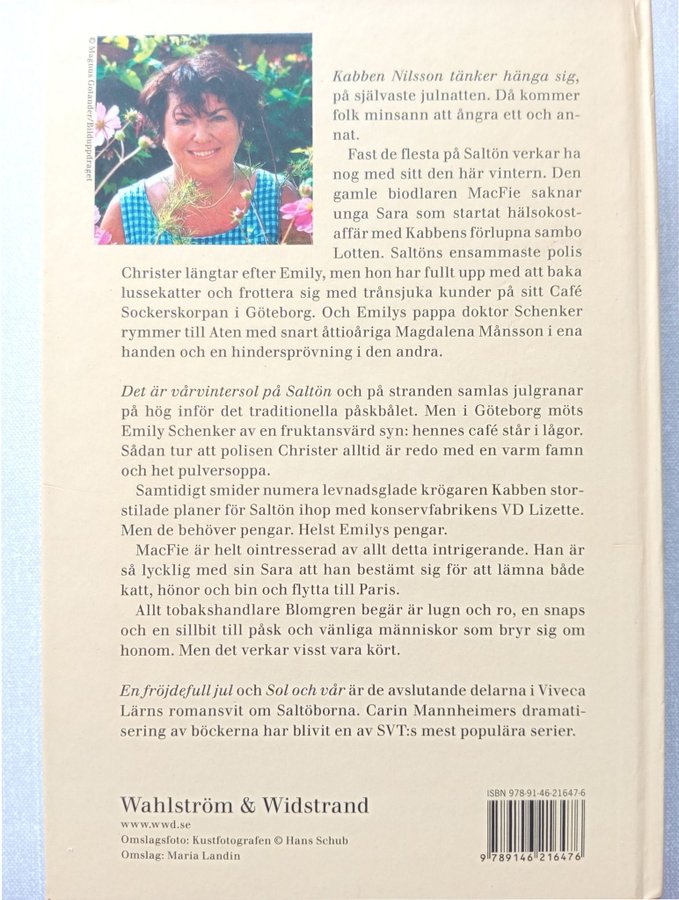 © Magnus Gotander/Bilduppdraget
Kabben Nilsson tänker hänga sig,
på självaste julnatten. Då kommer
folk minsann att ångra ett och an-
nat.
Fast de flesta på Saltön verkar ha
nog med sitt den här vintern. Den
gamle biodlaren MacFie saknar
unga Sara som startat hälsokost-
affär med Kabbens förlupna sambo
Lotten. Saltöns ensammaste polis
Christer längtar efter Emily, men hon har fullt upp med att baka
lussekatter och frottera sig med trånsjuka kunder på sitt Café
Sockerskorpan i Göteborg. Och Emilys pappa doktor Schenker
rymmer till Aten med snart åttioåriga Magdalena Månsson i ena
handen och en hindersprövning i den andra.
Det är vårvintersol på Saltön och på stranden samlas julgranar
på hög inför det traditionella påskbålet. Men i Göteborg möts
Emily Schenker av en fruktansvärd syn: hennes café står i lågor.
Sådan tur att polisen Christer alltid är redo med en varm famn
och het pulversoppa.
Samtidigt smider numera levnadsglade krögaren Kabben stor-
stilade planer för Saltön ihop med konservfabrikens VD Lizette.
Men de behöver pengar. Helst Emilys pengar.
MacFie är helt ointresserad av allt detta intrigerande. Han är
så lycklig med sin Sara att han bestämt sig för att lämna både
katt, hönor och bin och flytta till Paris.
Allt tobakshandlare Blomgren begär är lugn och ro, en snaps
och en sillbit till påsk och vänliga människor som bryr sig om
honom. Men det verkar visst vara kört.
En fröjdefull jul och Sol och vår är de avslutande delarna i Viveca
Lärns romansvit om Saltöborna. Carin Mannheimers dramati-
sering av böckerna har blivit en av SVT:s mest populära serier.
Wahlström & Widstrand
www.wwd.se
Omslagsfoto: Kustfotografen © Hans Schub
Omslag: Maria Landin
ISBN 978-91-46-21647-6
9 789146 216476